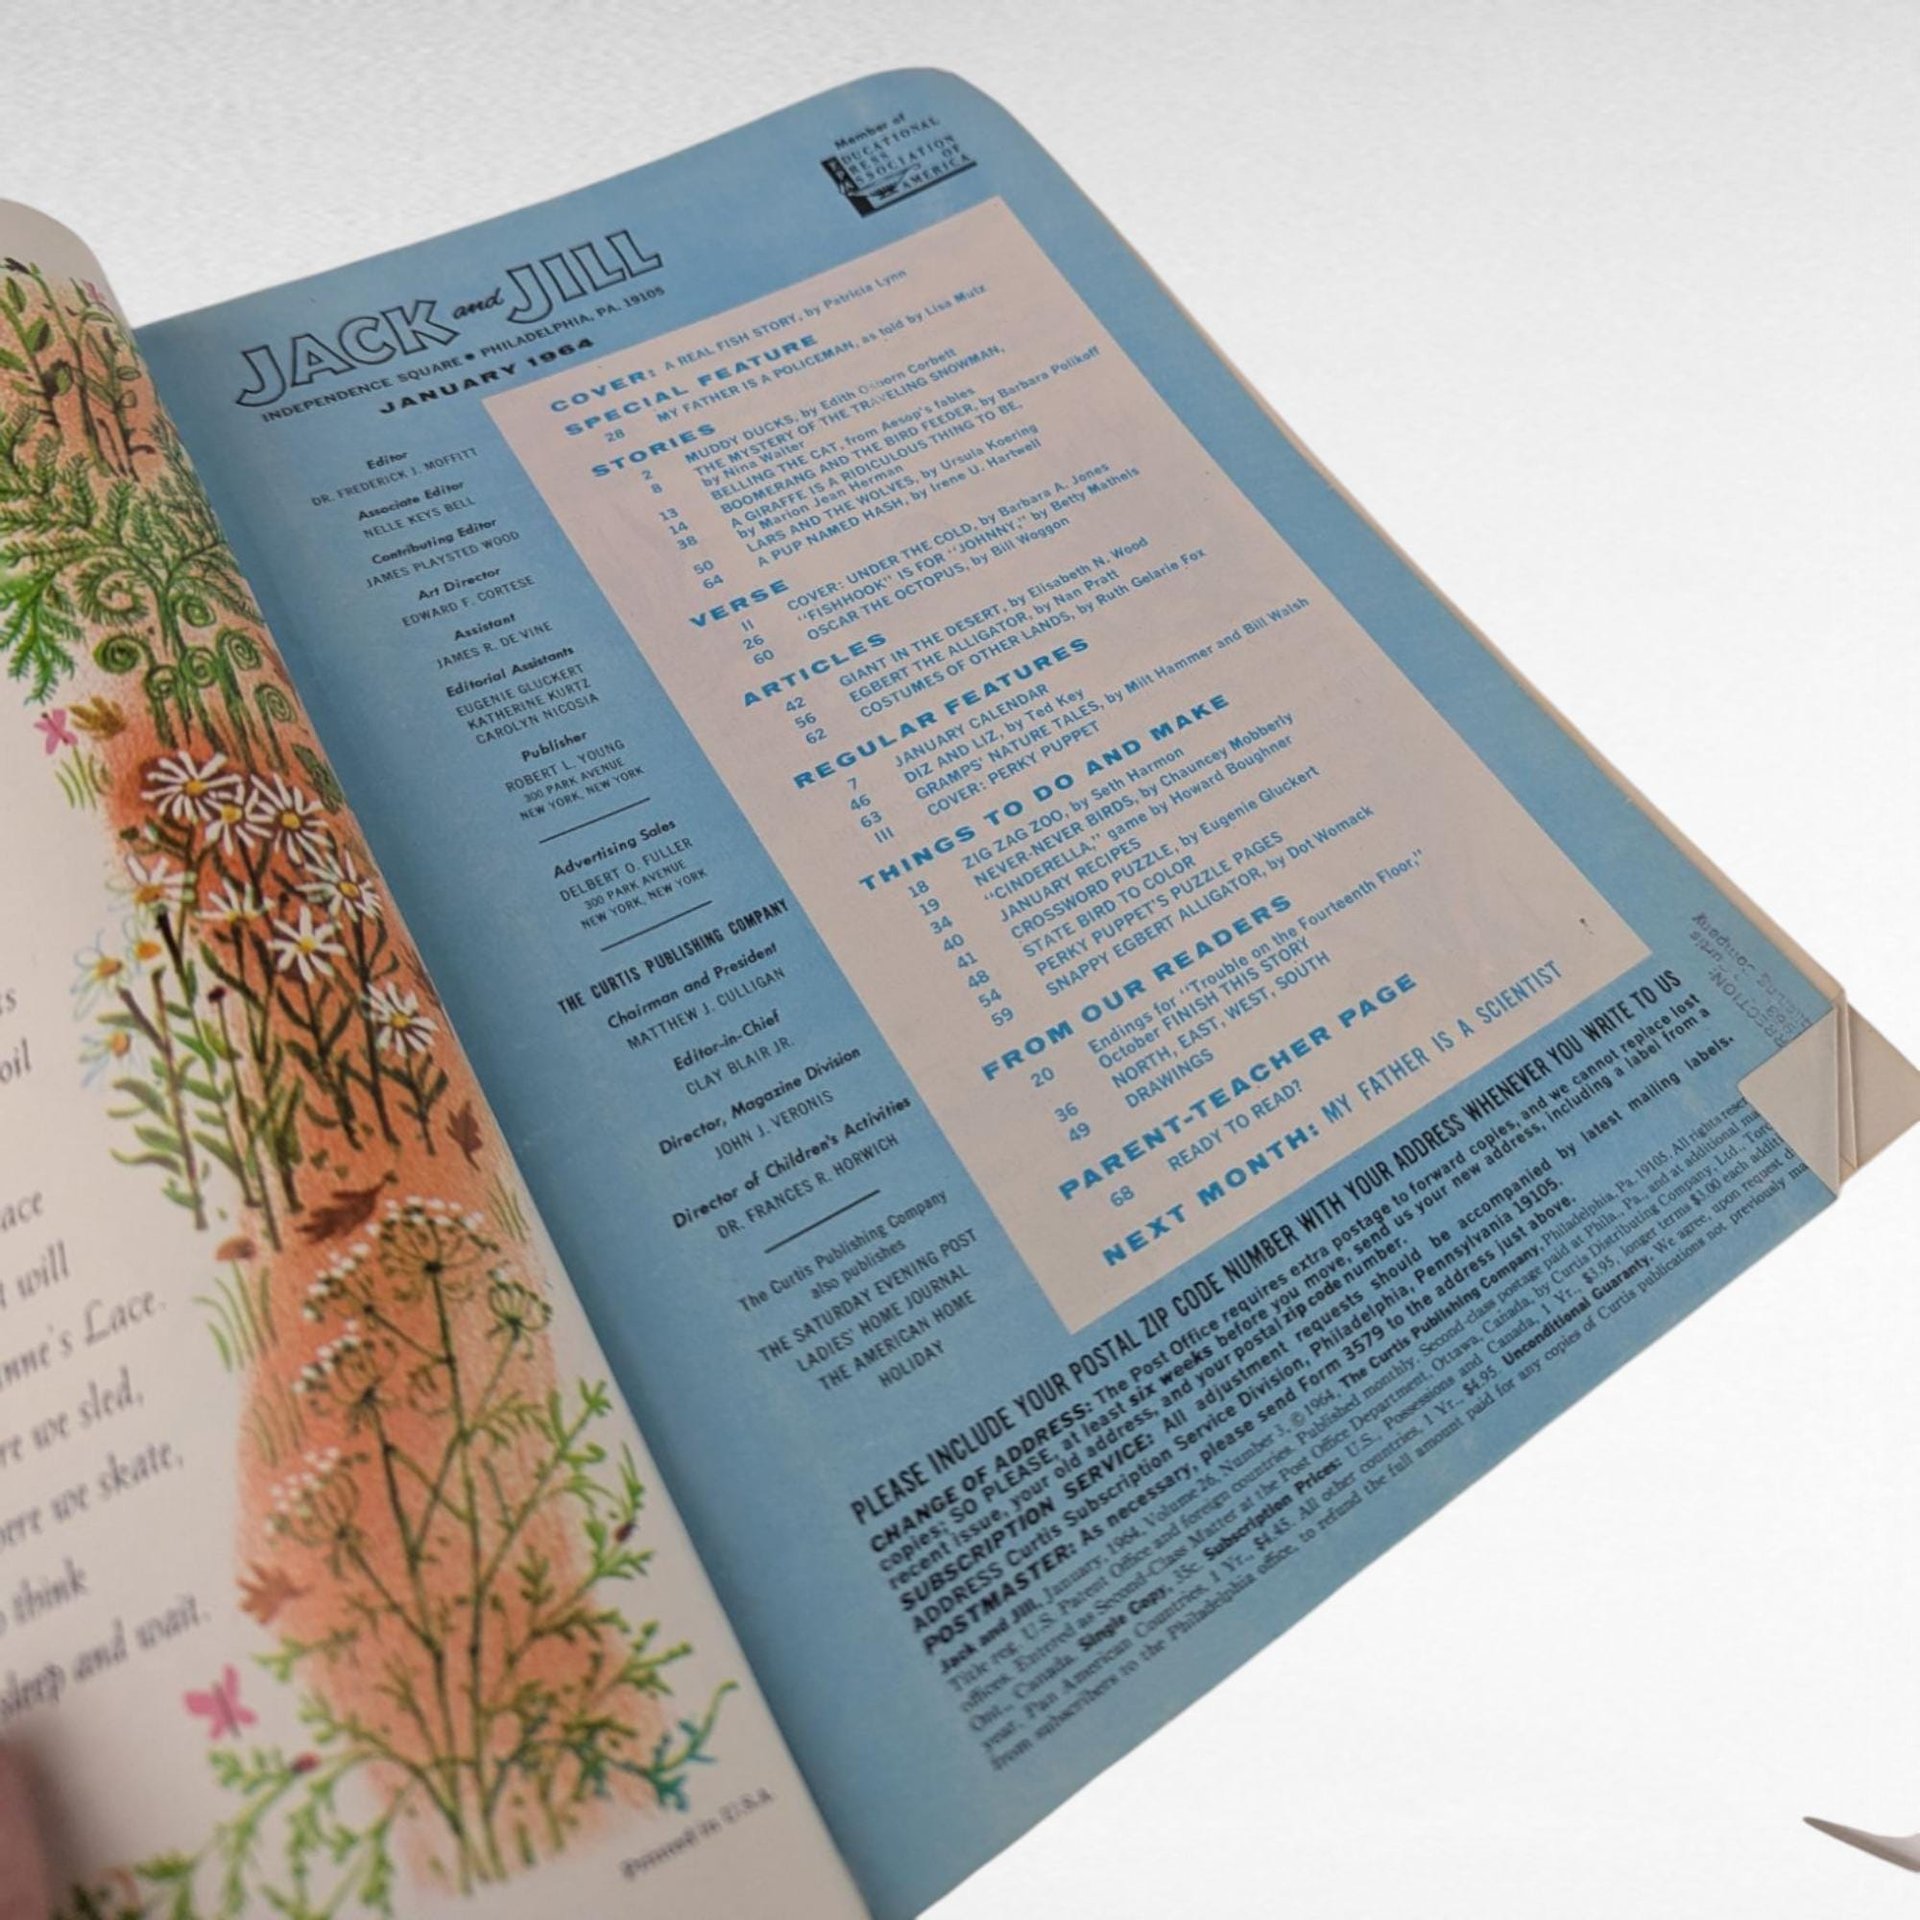 oil
ace
will
anne's Lace.
re we sled,
ere we skate,
think
sleep and wait.
Printed in U.S.A.
Member of
EDUCATIONAL
PRESS
ASSOCIATION
OF
AMERICA
JACK and JILL
INDEPENDENCE SQUARE • PHILADELPHIA, PA. 19105
JANUARY 1964
Editor
DR. FREDERICK J. MOFFITT
Associate Editor
NELLE KEYS BELL
Contributing Editor
JAMES PLAYSTED WOOD
Art Director
EDWARD F. CORTESE
Assistant
JAMES R. DE VINE
Editorial Assistants
EUGENIE GLUCKERT
KATHERINE KURTZ
CAROLYN NICOSIA
Publisher
ROBERT L. YOUNG
300 PARK AVENUE
NEW YORK, NEW YORK
Advertising Sales
DELBERT O. FULLER
300 PARK AVENUE
NEW YORK, NEW YORK
THE CURTIS PUBLISHING COMPANY
Chairman and President
MATTHEW J. CULLIGAN
Editor-in-Chief
CLAY BLAIR JR.
Director, Magazine Division
JOHN J. VERONIS
Director of Children's Activities
DR. FRANCES R. HORWICH
The Curtis Publishing Company
also publishes
THE SATURDAY EVENING POST
LADIES' HOME JOURNAL
THE AMERICAN HOME
HOLIDAY
COVER: A REAL FISH STORY, by Patricia Lynn
SPECIAL FEATURE
28 MY FATHER IS A POLICEMAN, as told by Lisa Mutz
STORIES
2 MUDDY DUCKS, by Edith Osborn Corbett
8 THE MYSTERY OF THE TRAVELING SNOWMAN,
by Nina Walter
13 BELLING THE CAT, from Aesop's fables
14 BOOMERANG AND THE BIRD FEEDER, by Barbara Polikoff
38 A GIRAFFE IS A RIDICULOUS THING TO BE,
by Marion Jean Herman
50 LARS AND THE WOLVES, by Ursula Koering
64 A PUP NAMED HASH, by Irene U. Hartwell
VERSE
II COVER: UNDER THE COLD, by Barbara A. Jones
26 "FISHHOOK" IS FOR "JOHNNY," by Betty Matheis
60 OSCAR THE OCTOPUS, by Bill Woggon
ARTICLES
42 GIANT IN THE DESERT, by Elisabeth N. Wood
56 EGBERT THE ALLIGATOR, by Nan Pratt
62 COSTUMES OF OTHER LANDS, by Ruth Gelarie Fox
REGULAR FEATURES
7 JANUARY CALENDAR
46 DIZ AND LIZ, by Ted Key
63 GRAMPS' NATURE TALES, by Milt Hammer and Bill Walsh
III COVER: PERKY PUPPET
THINGS TO DO AND MAKE
18 ZIG ZAG ZOO, by Seth Harmon
19 NEVER-NEVER BIRDS, by Chauncey Mobberly
34 "CINDERELLA," game by Howard Boughner
40 JANUARY RECIPES
41 CROSSWORD PUZZLE, by Eugenie Gluckert
48 STATE BIRD TO COLOR
54 PERKY PUPPET'S PUZZLE PAGES
59 SNAPPY EGBERT ALLIGATOR, by Dot Womack
FROM OUR READERS
20 Endings for "Trouble on the Fourteenth Floor,"
October FINISH THIS STORY
36 NORTH, EAST, WEST, SOUTH
49 DRAWINGS
PARENT-TEACHER PAGE
68 READY TO READ?
NEXT MONTH: MY FATHER IS A SCIENTIST
PLEASE INCLUDE YOUR POSTAL ZIP CODE NUMBER WITH YOUR ADDRESS WHENEVER YOU WRITE TO US
CHANGE OF ADDRESS: The Post Office requires extra postage to forward copies, and we cannot replace lost
copies; SO PLEASE, at least six weeks before you move, send us your new address, including a label from a
recent issue, your old address, and your postal zip code number.
SUBSCRIPTION SERVICE: All adjustment requests should be accompanied by latest mailing labels.
ADDRESS Curtis Subscription Service Division, Philadelphia, Pennsylvania 19105.
POSTMASTER: As necessary, please send Form 3579 to the address just above.
Jack and Jill, January, 1964, Volume 26, Number 3, © 1964, The Curtis Publishing Company, Philadelphia, Pa. 19105. All rights
Title reg. U.S. Patent Office and foreign countries. Published monthly. Second-class postage paid at Phila., Pa., and at additional
offices. Entered as Second-Class Matter at the Post Office Department, Ottawa, Canada, by Curtis Distributing Company, Ltd.,
Ont., Canada. Single Copy, 35c. Subscription Prices: U.S., Possessions and Canada, 1 Yr., $3.95, longer terms $3.00 each
year. Pan American Countries, 1 Yr., $4.45. All other countries, 1 Yr., $4.95. Unconditional Guaranty. We agree, upon request
from subscribers to the Philadelphia office, to refund the full amount paid for any copies of Curtis publications not previously